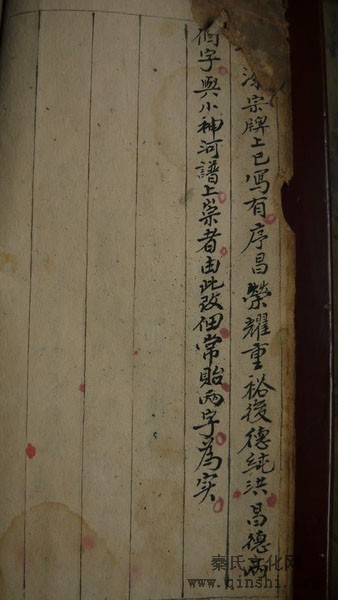 宗牌上已写有序昌荣耀重裕後德纯洪昌德两
個字與小神河譜上崇者由此改佃常貽两字為实
秦氏文化网
www.qinshi.